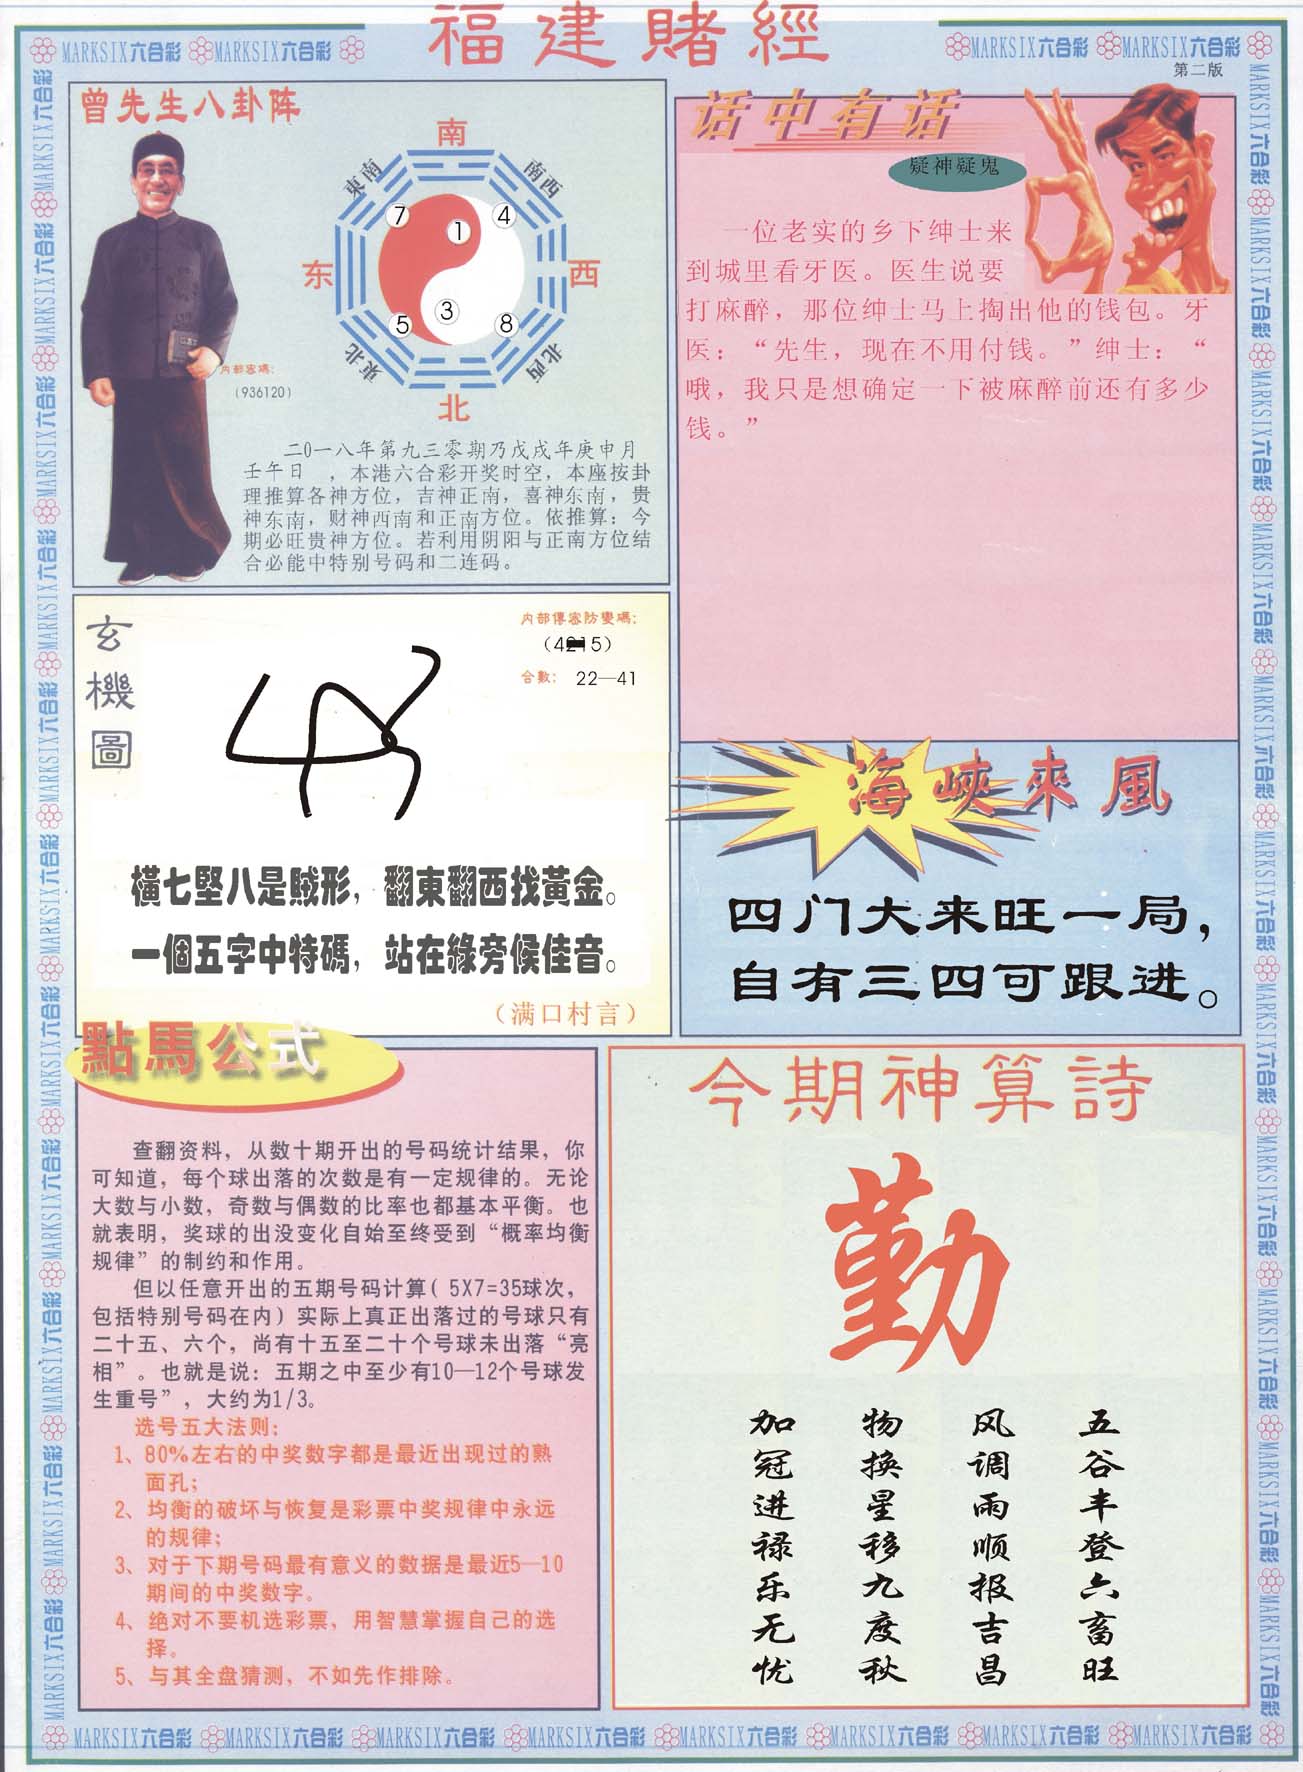 福建賭經
MARKSIX六合彩 MARKSIX六合彩
MARKSIX六合彩 MARKSIX六合彩
第二版
曾先生八卦阵
南
東南
南西
7
1
4
东
西
5
3
8
東北
北西
北
内部密碼：
（936120）
二〇一八年第九三零期乃戊戌年庚申月
壬午日 ，本港六合彩开奖时空，本座按卦
理推算各神方位，吉神正南，喜神东南，贵
神东南，财神西南和正南方位。依推算：今
期必旺贵神方位。若利用阴阳与正南方位结
合必能中特别号码和二连码。
话中有话
疑神疑鬼
一位老实的乡下绅士来
到城里看牙医。医生说要
打麻醉，那位绅士马上掏出他的钱包。牙
医：“先生，现在不用付钱。”绅士：“
哦，我只是想确定一下被麻醉前还有多少
钱。”
玄機圖
内部傳密防變碼：
（4215）
合數： 22—41
橫七堅八是賊形，翻東翻西找黃金。
一個五字中特碼，站在綠旁候佳音。
（满口村言）
海峽來風
四门大来旺一局，
自有三四可跟进。
點馬公式
查翻资料，从数十期开出的号码统计结果，你
可知道，每个球出落的次数是有一定规律的。无论
大数与小数，奇数与偶数的比率也都基本平衡。也
就表明，奖球的出没变化自始至终受到“概率均衡
规律”的制约和作用。
但以任意开出的五期号码计算（5X7=35球次，
包括特别号码在内）实际上真正出落过的号球只有
二十五、六个，尚有十五至二十个号球未出落“亮
相”。也就是说：五期之中至少有10—12个号球发
生重号”，大约为1/3。
选号五大法则：
1、80%左右的中奖数字都是最近出现过的熟
面孔；
2、均衡的破坏与恢复是彩票中奖规律中永远
的规律；
3、对于下期号码最有意义的数据是最近5—10
期间的中奖数字。
4、绝对不要机选彩票，用智慧掌握自己的选
择。
5、与其全盘猜测，不如先作排除。
今期神算詩
勤
五谷丰登六畜旺
风调雨顺报吉昌
物换星移九度秋
加冠进禄乐无忧
MARKSIX六合彩 MARKSIX六合彩 MARKSIX六合彩 MARKSIX六合彩 MARKSIX六合彩 MARKSIX六合彩 MARKSIX六合彩 MARKSIX六合彩